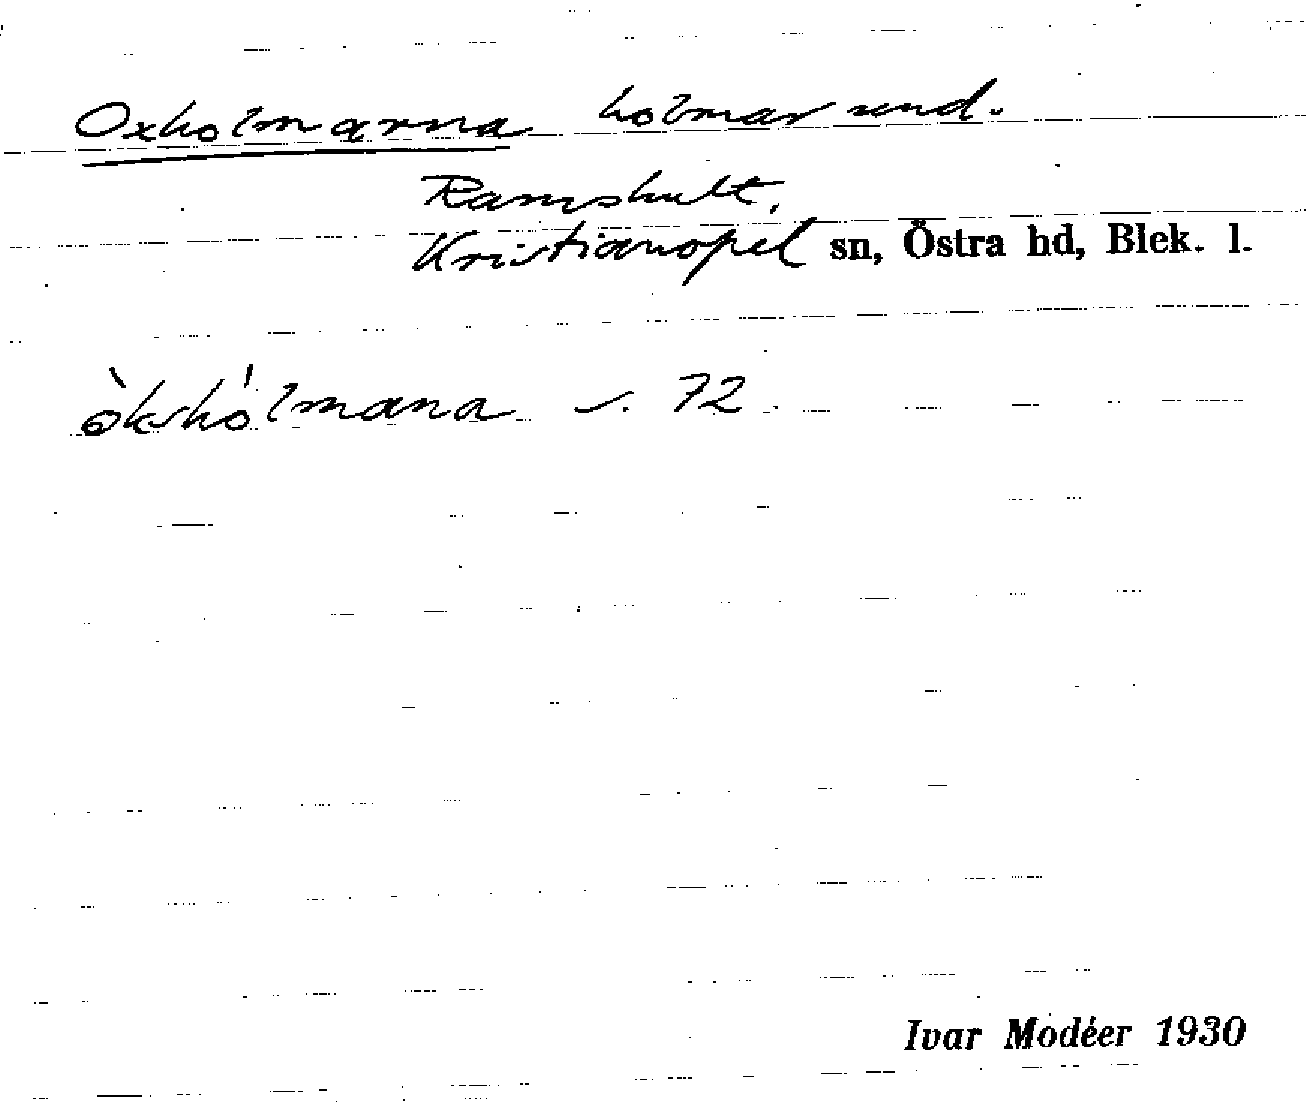 Oxholmarna holmar und.
Ramshult,
Kristianopel sn, Östra hd, Blek. l.
òkshólmana s. 72
Ivar Modéer 1930